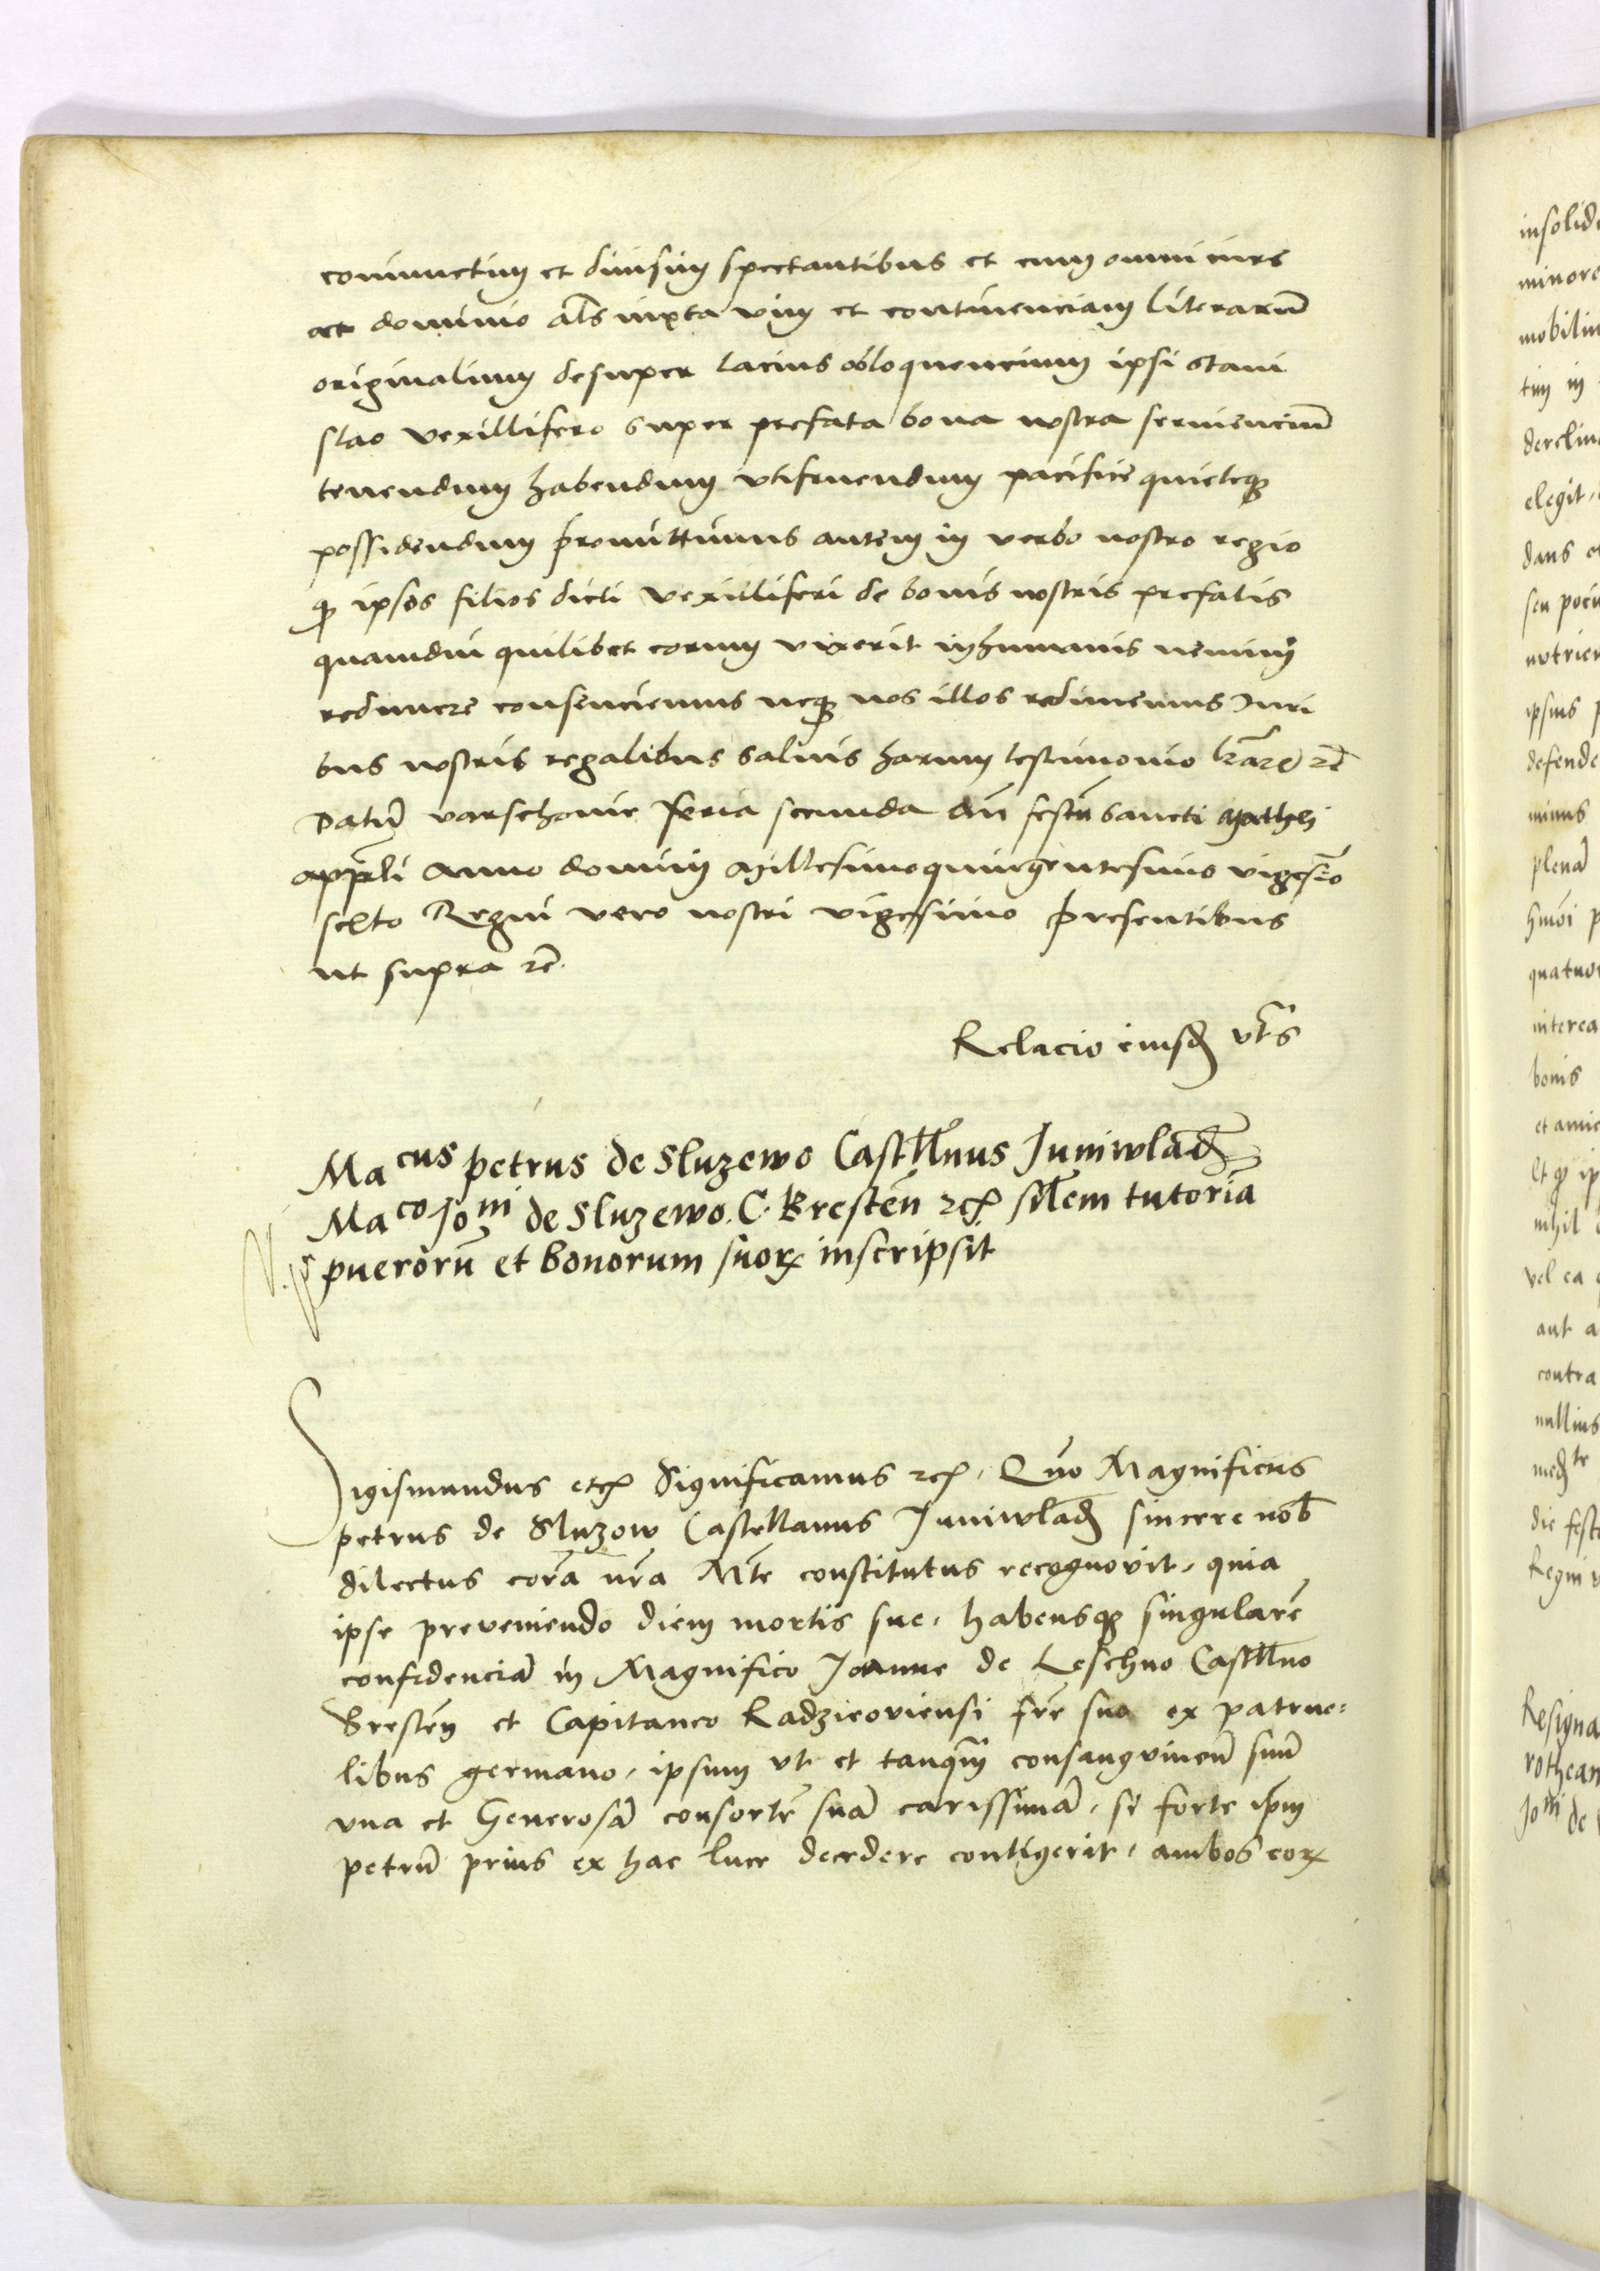 coniunctim et diuisim spectantibus et cum omni iure
ac dominio als iuxta vim et continenciam literarum̄
originalium desuper lacius obloquencium ipsi Stani
slao vexillifero super prefata bona nostra seruiencium̄
tenendum habendum vtifruendum pacifice quieteqꝫ
possidendum promittimus autem in verbo nostro regio
qꝫ ipsos filios dicti vexilliferi de bonis nostris prefatis
quamdiu quilibet eorum vixerit in humanis nemini
redimere consenciemus neqꝫ nos illos redimemus Juri
bus nostris regalibus saluis harum testimonio lrar̄ꝫ rc̄
Datum̄ varschouie feria secunda an̄ festū sancti Mathei
appl̄i anno domini Millesimoquingentesimo vigesīo
sexto Regni vero nostri vigesimo presentibus
ut supra rc̄.
Relacio eiusdꝫ vts̄
Ma cus petrus de Sluzewo Castll̄nus Juniwladꝫ
Ma co Jo ni de Sluzewo. C. Bresten̄ rcꝫ sil̄em tutoriā
puerorū et bonorum suorꝝ inscripsit
Sigismundus etcꝫ Significamus rcꝫ. Quō Magnificus
petrus de Sluzow Castellanus Juniwladꝫ sincere nob̄
dilectus corā nr̄a Mtē constitutus recognovit, quia
ipse preveniendo diem mortis sue, habensqꝫ singularē
confidenciā in Magnifico Joanne de Leschno Castll̄no
Bresteñ et Capitaneo Radzieoviensi fr̄e suo ex patrue=
libus germano, ipsum vt et tanqꝫ consangvineū suū
vna et Generosā consortē suā carissimā, si forte ip̄m
petrū prius ex hac luce decedere contigerit, ambos eorꝝ
insolid
minore
mobiliu
tim in
derelin
elegit,
dans et
seu
nutrien
ipsius p
defende
minus
plenā
hmōi p
quatuor
interea
bonis
et amic
Et qꝫ ip
nihil
vel ea
aut a
contra
nullius
die fest
Regni v
Resigna
rothean
Jo ni de